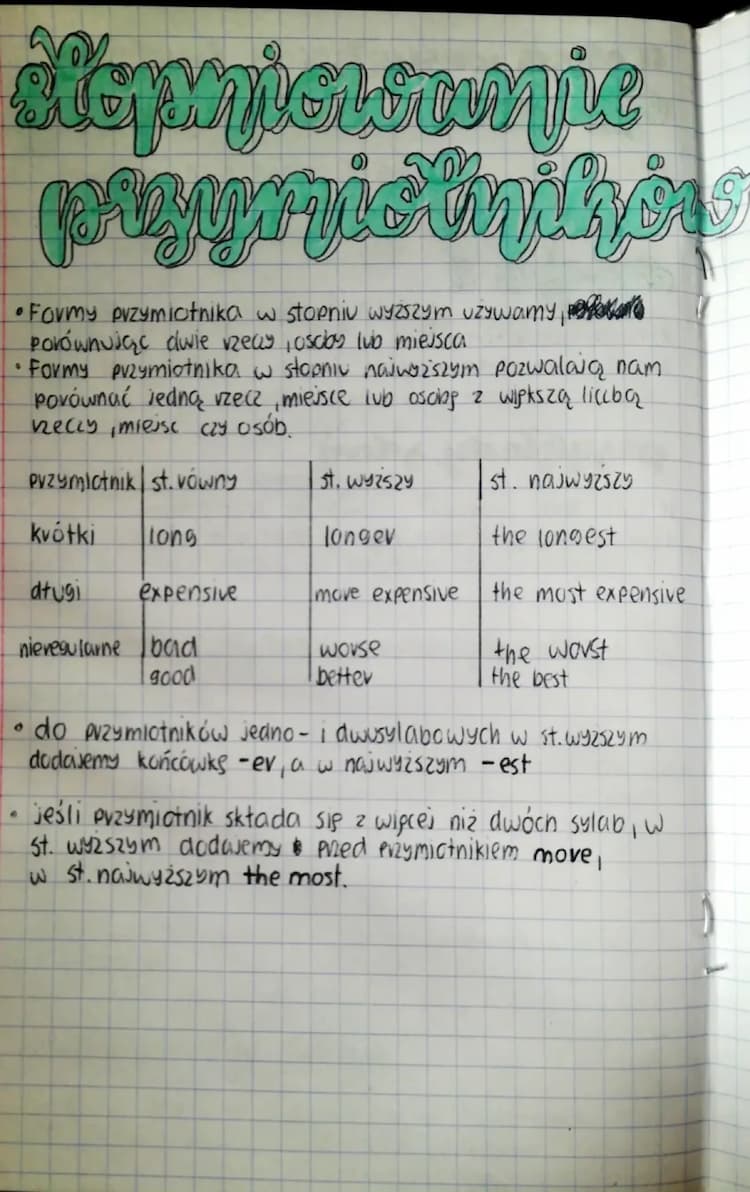 stopniowanie
przymiotników
• Formy przymiotnika w stopniu wyższym używamy,
porównując dwie rzeczy, osoby lub miejsca
• Formy przymiotnika w stopniu najwyższym pozwalają nam
porównać jedną rzecz, miejsce lub osobę z większą liczbą
rzeczy, miejsc czy osób.
przymiotnik st. równy st. wyższy st. najwyższy
krótki long longer the longest
długi expensive more expensive the most expensive
nieregularne bad worse the worst
good better the best
• do przymiotników jedno- i dwusylabowych w st. wyższym
dodajemy końcówkę -er, a w najwyższym -est
• jeśli przymiotnik składa się z więcej niż dwóch sylab, w
st. wyższym dodajemy przed przymiotnikiem more,
w st. najwyższym the most.